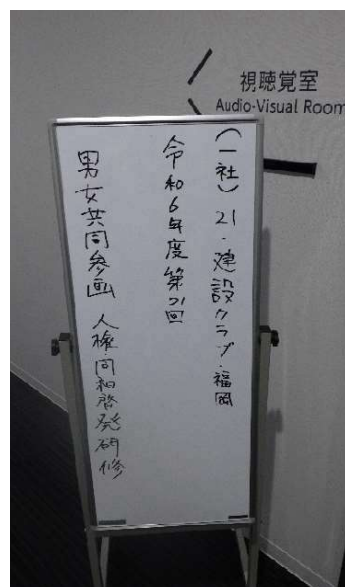 視聴覚室
Audio-Visual Room
(一社)21・建設クラブ福岡
令和6年度第21回
男女共同参画 人権・同和啓発研修